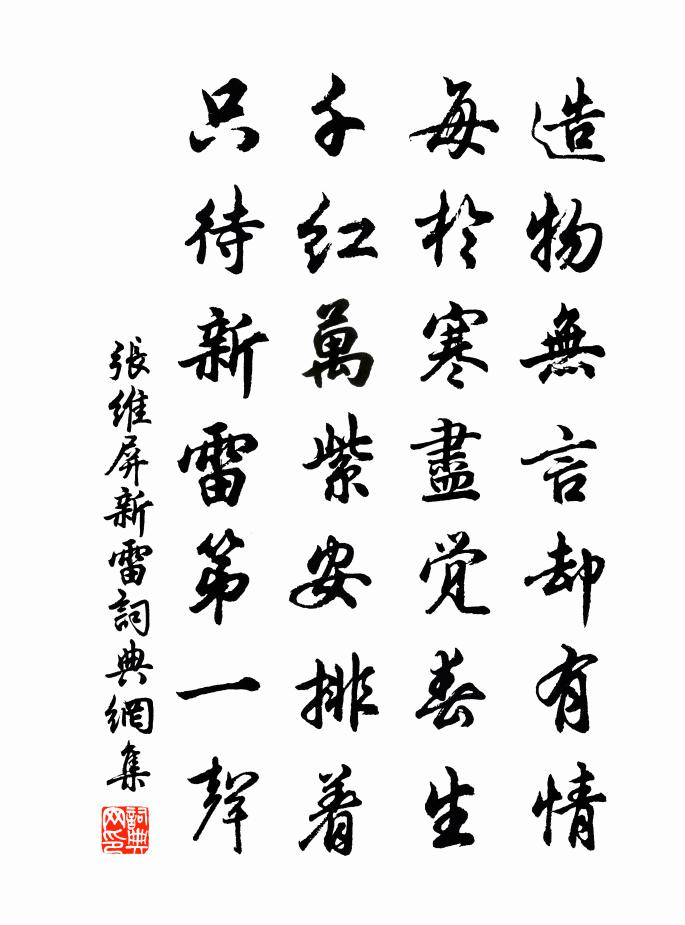 造物無言却有情
每於寒盡覺春生
千紅萬紫安排着
只待新雷第一聲
張維屏新雷詞典網集
詞典网印